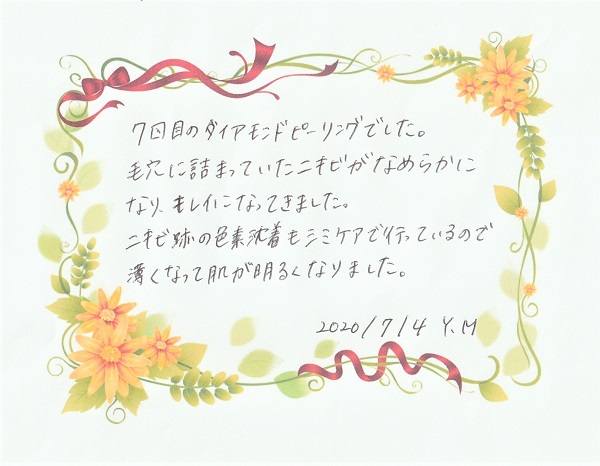 7回目のダイアモンドピーリングでした。
毛穴に詰まっていたニキビがなめらかに
なり、キレイになってきました。
ニキビ跡の色素沈着もシミケアで行っているので
薄くなって肌が明るくなりました。
2020/7/4 Y.M